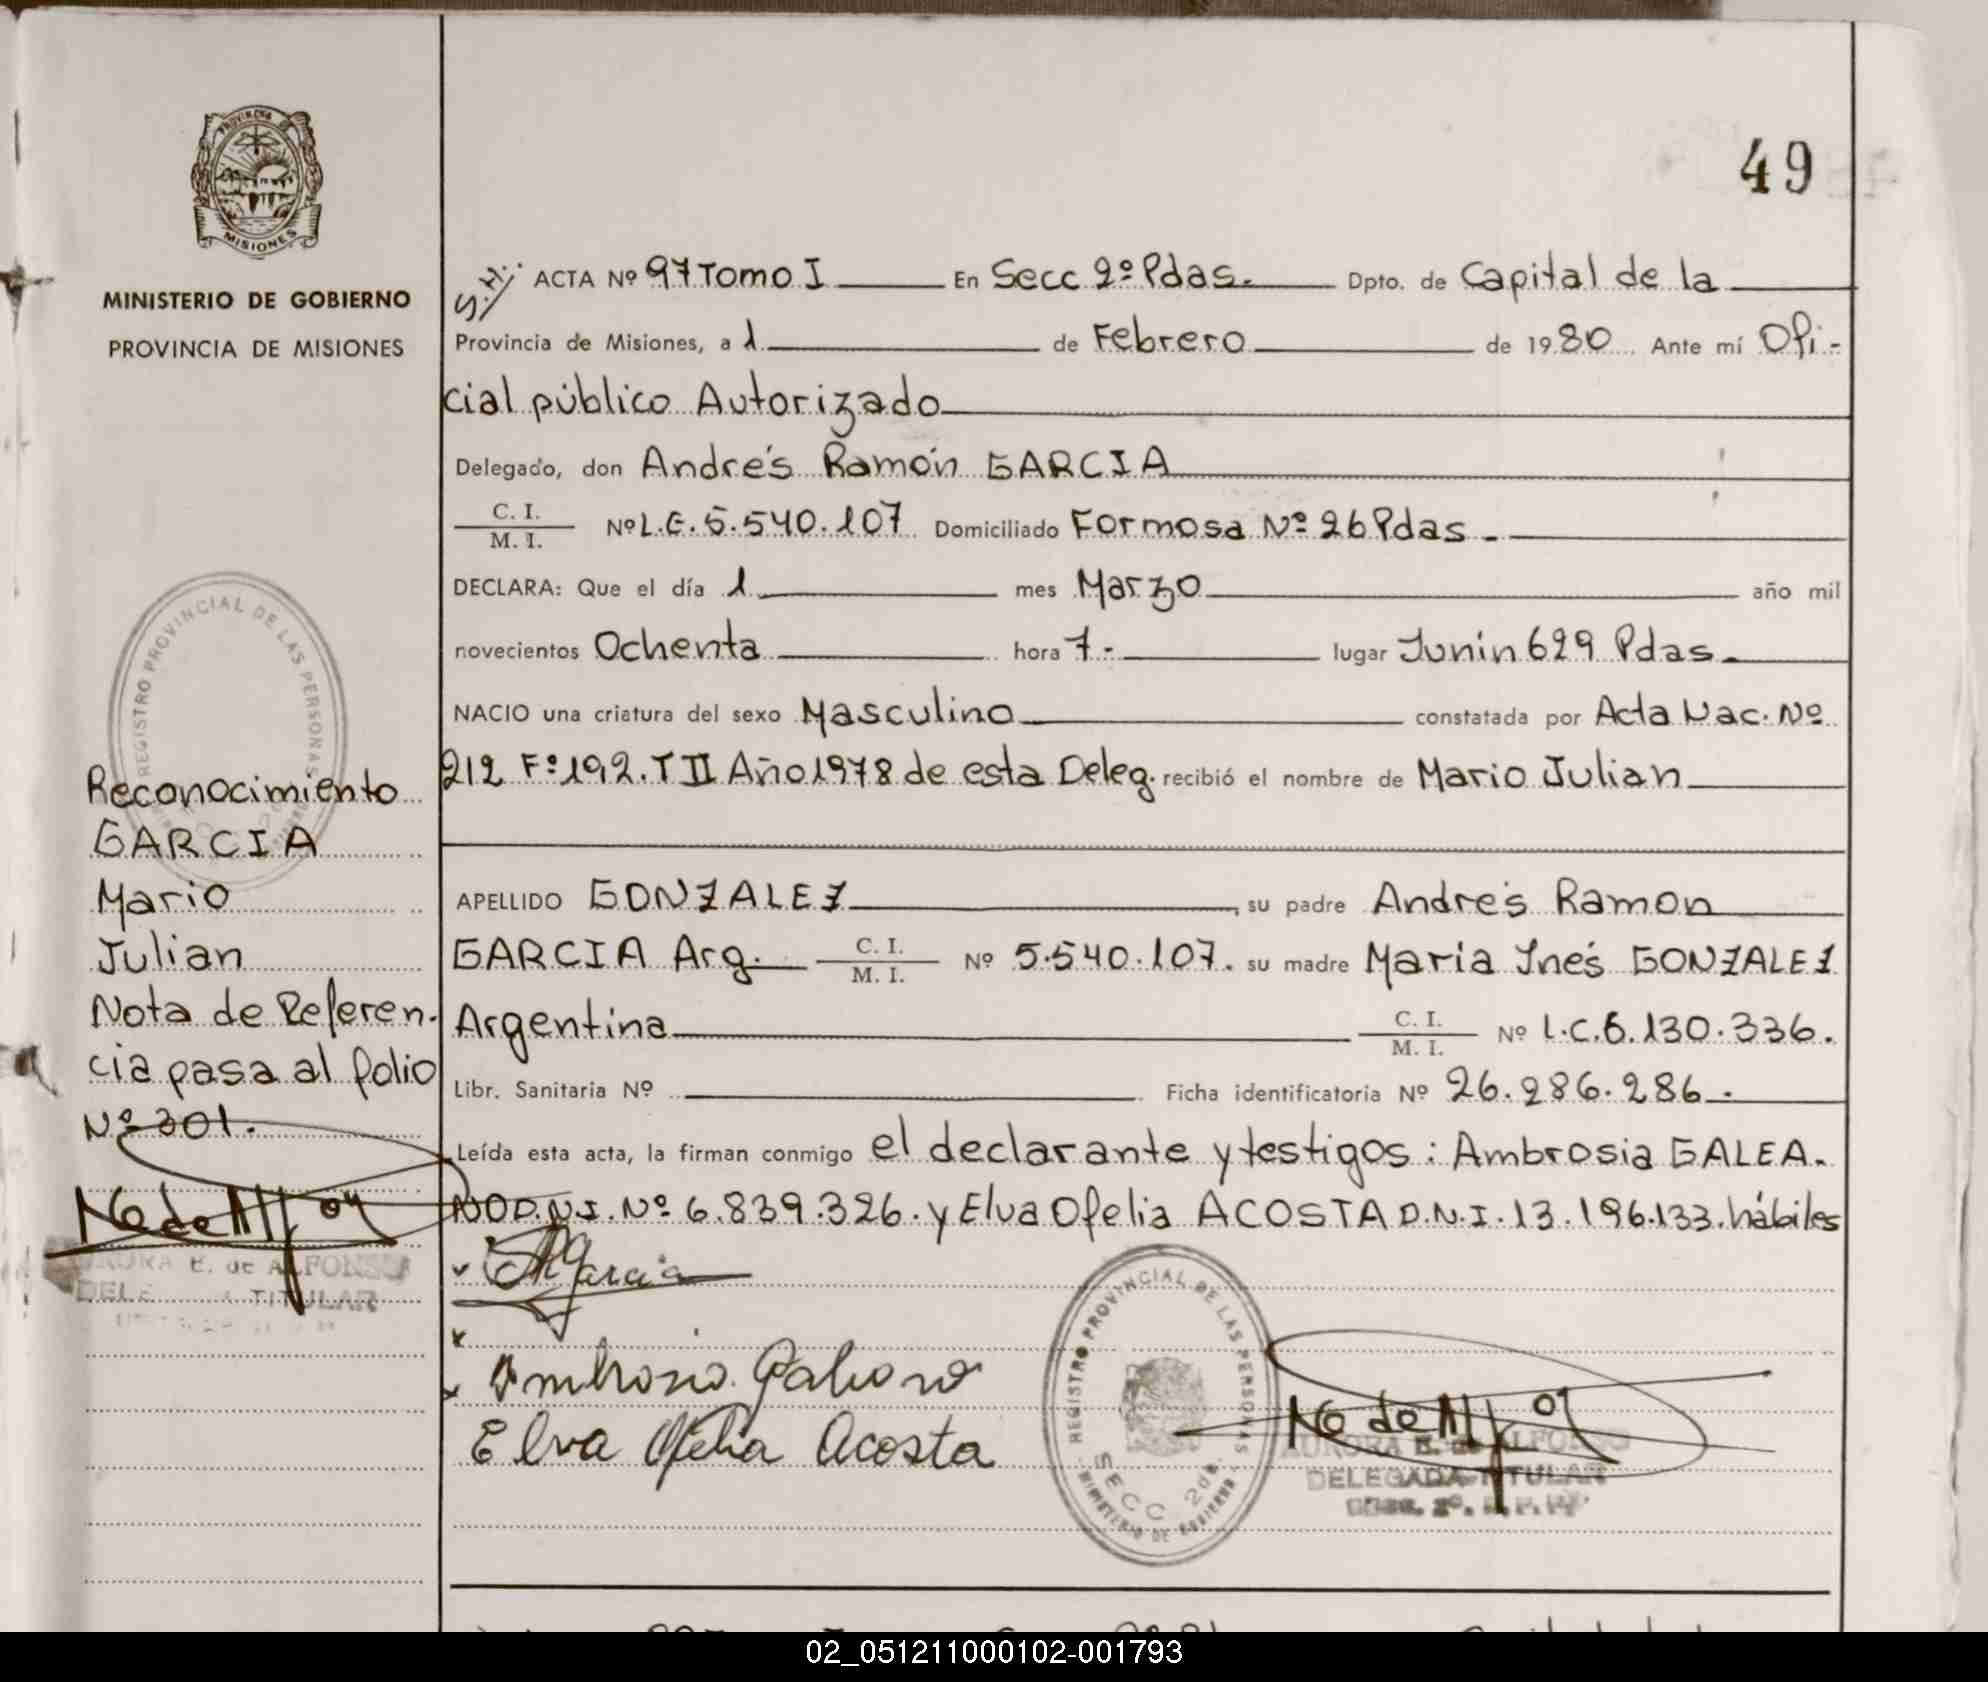 PROVINCIA DE
MISIONES
MINISTERIO DE GOBIERNO
PROVINCIA DE MISIONES
49
S.H. ACTA Nº 97 Tomo I En Secc 2º Pdas. Dpto. de Capital de la
Provincia de Misiones, a 1 de Febrero de 1980 Ante mí Ofi-
cial público Autorizado
Delegado, don Andrés Ramón GARCIA
C. I.
M. I. Nº L.E. 5.540.107 Domiciliado Formosa Nº 26 Pdas.
DECLARA: Que el día 1 mes Marzo año mil
novecientos Ochenta hora 7- lugar Junin 629 Pdas.
NACIO una criatura del sexo Masculino constatada por Acta Nac. Nº
212 Fº 192. T II Año 1978 de esta Deleg. recibió el nombre de Mario Julian
APELLIDO GONZALEZ, su padre Andrés Ramon
GARCIA Arg. C. I.
M. I. Nº 5.540.107. su madre Maria Inés GONZALEZ
Argentina C. I.
M. I. Nº L.C. 6.130.336.
Libr. Sanitaria Nº Ficha identificatoria Nº 26.286.286.
Leída esta acta, la firman conmigo el declarante y testigos: Ambrosia GALEA.
NO D.N.I. Nº 6.839.326. y Elva Ofelia ACOSTA D.N.I. 13.196.133. hábiles
REGISTRO PROVINCIAL DE LAS PERSONAS
Reconocimiento
GARCIA
Mario
Julian
Nota de Referen-
cia pasa al folio
Nº 301.
E. de ALFONSO
TITULAR
Garcia
Elva Ofelia Acosta
REGISTRO PROVINCIAL DE LAS PERSONAS
SECC 2da.
MINISTERIO DE GOBIERNO
AURORA E. de ALFONSO
DELEGADA TITULAR
02_051211000102-001793